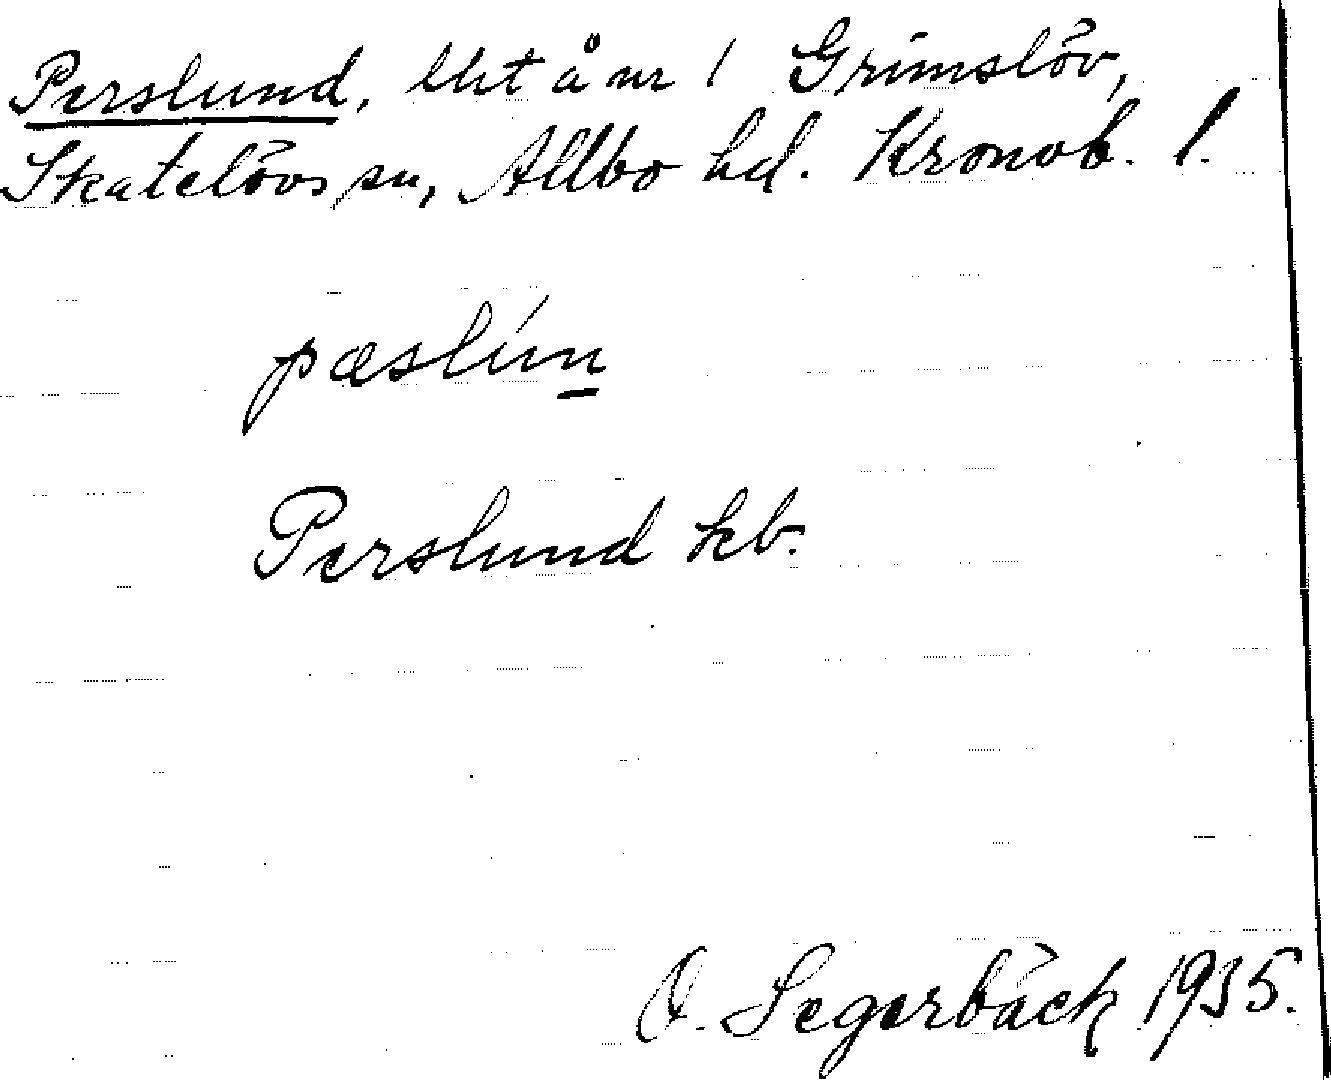 Perslund, lht å nr 1 Grimslöv,
Skatelövs sn, Allbo hd. Kronob. l.
pæslún
Perslund kb.
O. Segerbäck 1935.